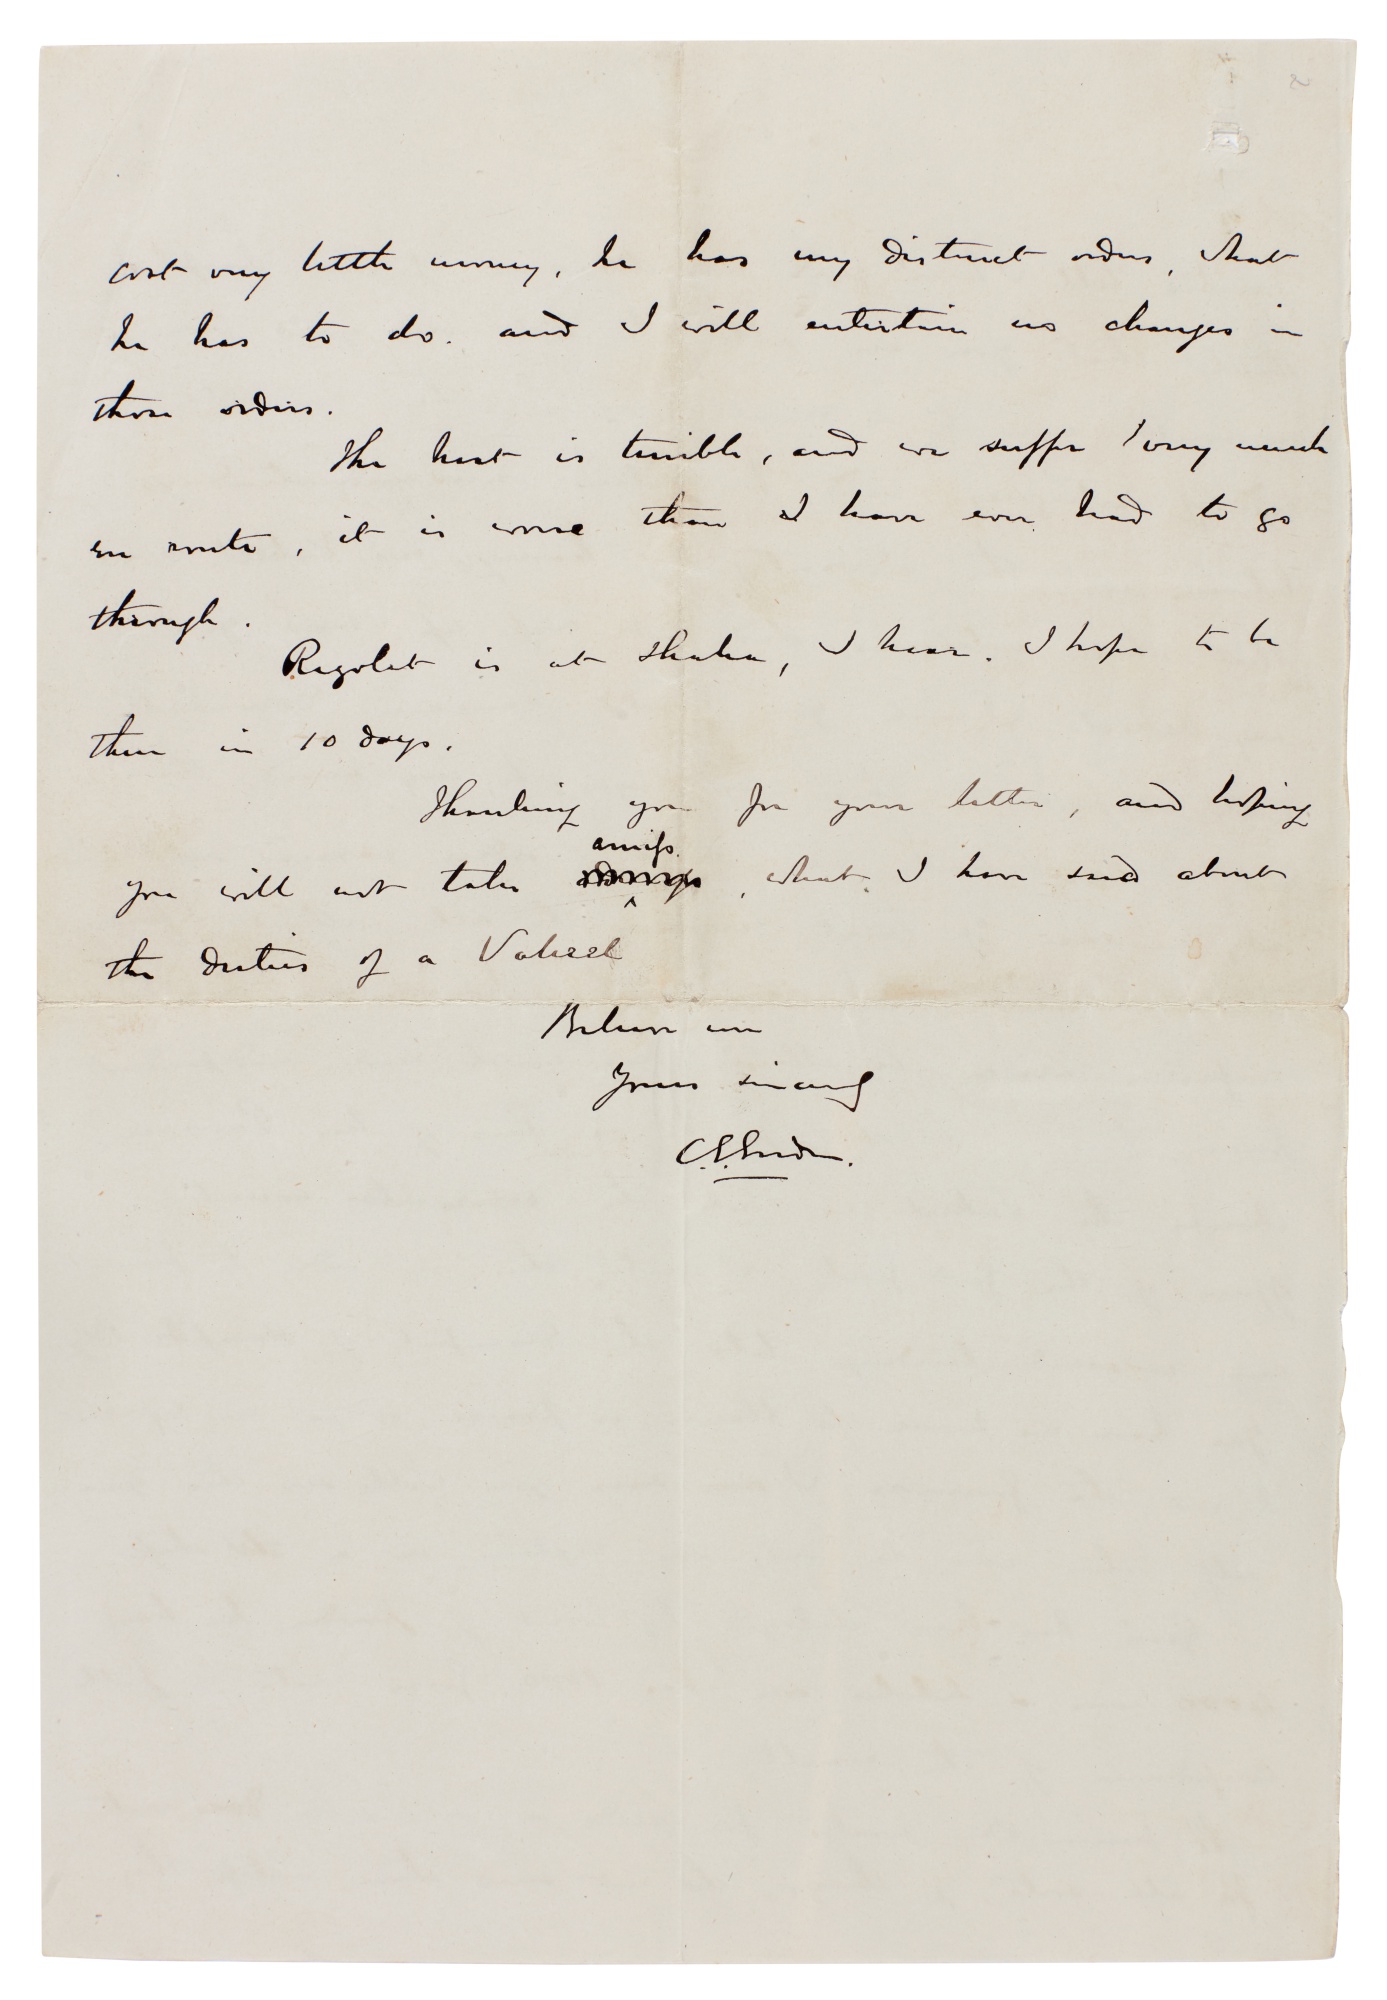 cost very little money, he has my distinct orders, what
he has to do. and I will entertain no changes in
those orders.
The heat is terrible, and we suffer very much
en route, it is worse than I have ever had to go
through.
Rigolet is at Shaka, I hear. I hope to be
there in 10 days.
Thanking you for your letter, and hoping
amiss
you will not take, what I have said about
the duties of a Vakeel
Believe me
Yours sincerely
C.G.Gordon.